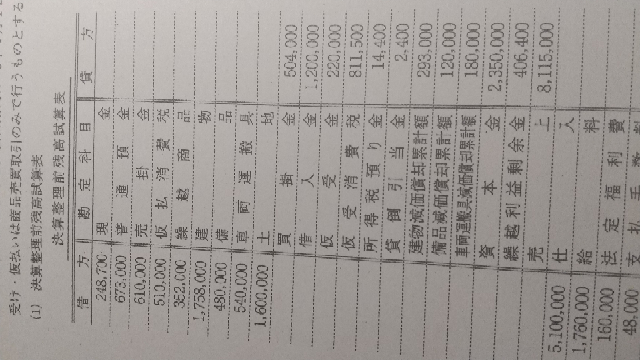 受け・仮払いは商品売買取引のみで行うものとする
(1) 決算整理前残高試算表
決算整理前残高試算表
借方 勘定科目 貸方
248,700 現金
673,000 普通預金
610,000 売掛金
510,000 仮払消費税
382,000 繰越商品
1,758,000 建物
480,000 備品
540,000 車両運搬具
1,600,000 土地
買掛金 504,000
借入金 1,200,000
仮受金 220,000
仮受消費税 811,500
所得税預り金 14,400
貸倒引当金 2,400
建物減価償却累計額 293,000
備品減価償却累計額 120,000
車両運搬具減価償却累計額 180,000
資本金 2,350,000
繰越利益剰余金 406,400
売上 8,115,000
5,100,000 仕入
1,760,000 給料
160,000 法定福利費
48,000 支払手数料